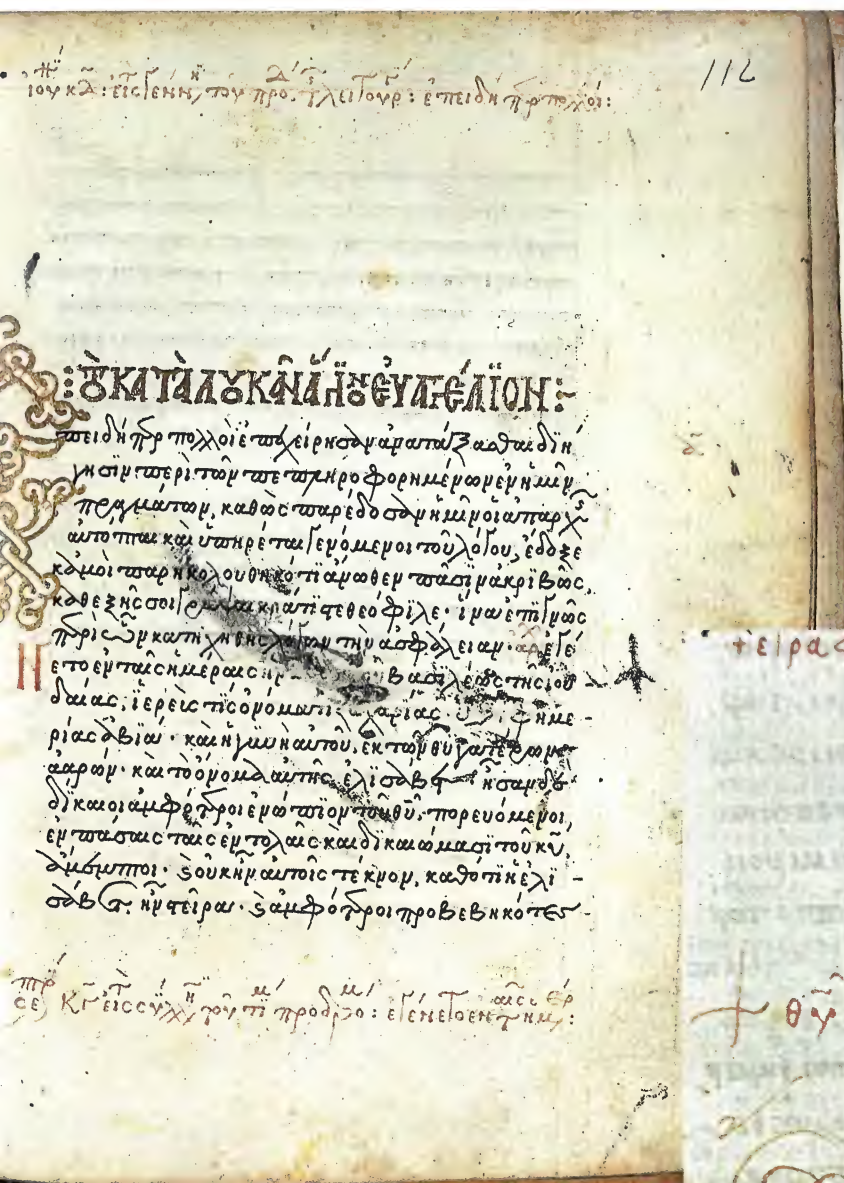 112
ἰουν κδ: εἰς τ γενν, τοῦ προδ. τ λειτουρ: ἐπειδήπερ πολλοί:
τὸ κατὰ λουκᾶν ἅγιον εὐαγγέλιον:
πειδήπερ πολλοὶ ἐπεχείρησαν ἀνατάξασθαι διη
γησιν περὶ τῶν πεπληροφορημένων ἐν ἡμῖν
πραγμάτων, καθὼς παρέδοσαν ἡμῖν οἱ ἀπαρχῆς
αὐτόπται καὶ ὑπηρέται γενόμενοι τοῦ λόγου, ἔδοξε
κἀμοὶ παρηκολουθηκότι ἄνωθεν πᾶσιν ἀκριβῶς,
καθεξῆς σοι γράψαι κράτιστε θεόφιλε· ἵνα ἐπιγνῶς
περὶ ὧν κατηχήθης λόγων τὴν ἀσφάλειαν· ἐγέ
ετο ἐν ταῖς ἡμέραις βασιλέως τῆς ἰου
δαίας, ἱερεύς τις ὀνόματι ζαχαρίας ἐφημε
ρίας ἀβιά· καὶ ἡ γυνὴ αὐτοῦ, ἐκ τῶν θυγατέρων
ἀαρών· καὶ τὸ ὄνομα αὐτῆς ἐλισάβετ· ἦσαν δὲ
δίκαιοι ἀμφότεροι ἐνώπιον τοῦ θῡ, πορευόμενοι,
ἐν πάσαις ταῖς ἐντολαῖς καὶ δικαιώμασι τοῦ κῡ,
ἄμεμπτοι· καὶ οὐκ ἦν αὐτοῖς τέκνον, καθότι ἡ ἐλι
σάβετ, ἦν στεῖρα· καὶ ἀμφότεροι προβεβηκότες
σε κγ εἰς σύλλη τοῦ τι προδρο: ἐγένετο ἐν τ ημ:
τειρας
θῡ